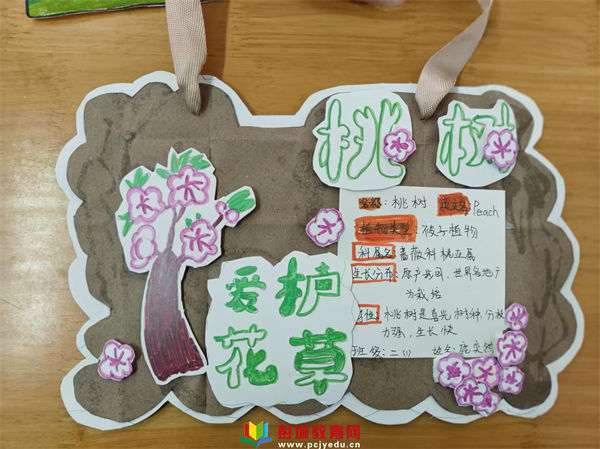 桃树
名称：桃树 英文名：Peach
植物类型：被子植物
科属名：蔷薇科桃亚属
生长分布：原产我国，世界各地广
为栽培
习性：桃树是喜光树种，分枝
力强，生长快
班级：二(1) 姓名：
爱护
花草
彭城教育网
www.pcjyedu.cn